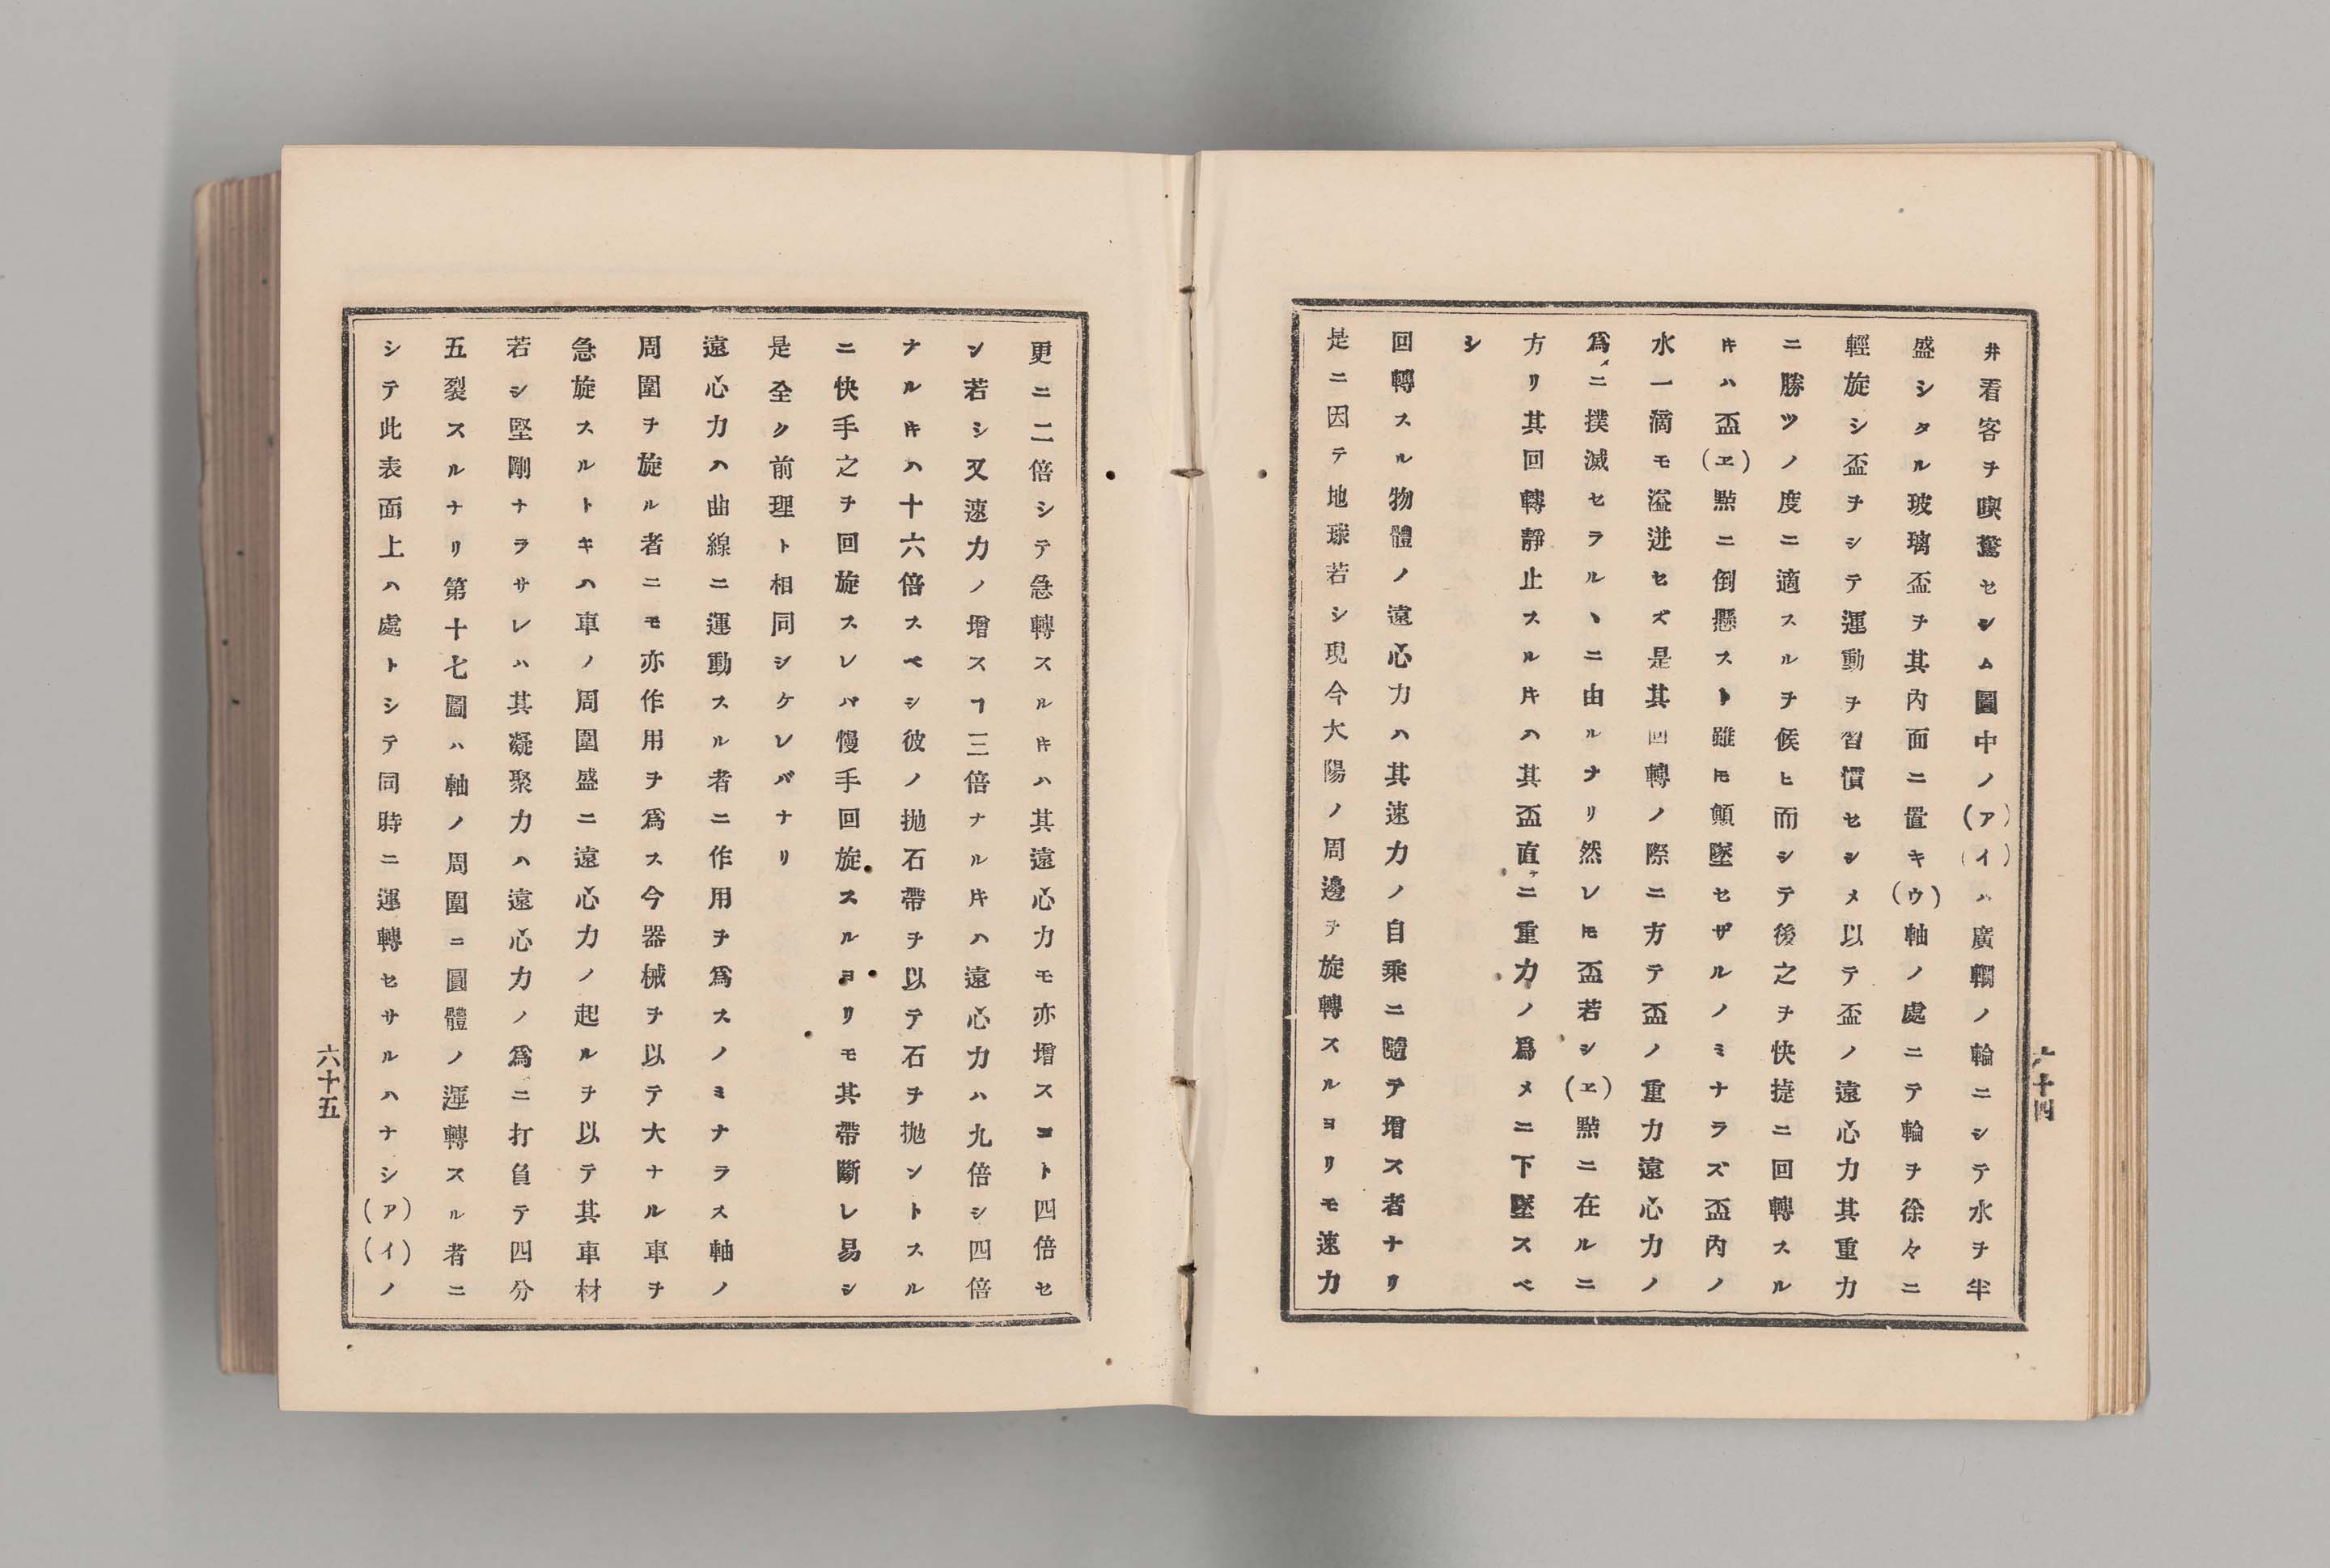 井看客ヲ喫驚セシム圖中ノ(ア)(イ)ハ廣輞ノ輪ニシテ水ヲ半
盛シタル玻璃盃ヲ其內面ニ置キ(ウ)軸ノ處ニテ輪ヲ徐々ニ
輕旋シ盃ヲシテ運動ヲ習慣セシメ以テ盃ノ遠心力其重力
ニ勝ツノ度ニ適スルヲ候ヒ而シテ後之ヲ快捷ニ回轉スル
𪜈ハ盃(ヱ)㸃ニ倒懸スト雖𪜈顛墜セザルノミナラズ盃內ノ
水一滴モ溢迸セズ是其回轉ノ際ニ方テ盃ノ重力遠心力ノ
爲メニ撲滅セラルヽニ由ルナリ然レ𪜈盃若シ(ヱ)㸃ニ在ルニ
方リ其回轉靜止スル𪜈ハ其盃直チニ重力ノ爲メニ下墜スベ
シ
回轉スル物體ノ遠心力ハ其速力ノ自乘ニ隨テ增ス者ナリ
是ニ因テ地球若シ現今大陽ノ周邊ヲ旋轉スルヨリモ速力
六十四
更ニ二倍シテ急轉スル𪜈ハ其遠心力モ亦增スコト四倍セ
ン若シ又速力ノ增スヿ三倍ナル𪜈ハ遠心力ハ九倍シ四倍
ナル𪜈ハ十六倍スベシ彼ノ抛石帶ヲ以テ石ヲ抛ントスル
ニ快手之ヲ回旋スレバ慢手回旋スルヨリモ其帶斷レ易シ
是全ク前理ト相同シケレバナリ
遠心力ハ曲線ニ運動スル者ニ作用ヲ爲スノミナラス軸ノ
周圍ヲ旋ル者ニモ亦作用ヲ爲ス今器械ヲ以テ大ナル車ヲ
急旋スルトキハ車ノ周圍盛ニ遠心力ノ起ルヲ以テ其車材
若シ堅剛ナラサレハ其凝聚力ハ遠心力ノ爲ニ打負テ四分
五裂スルナリ第十七圖ハ軸ノ周圍ニ圓體ノ運轉スル者ニ
シテ此表面上ハ處トシテ同時ニ運轉セサルハナシ(ア)(イ)ノ
六十五